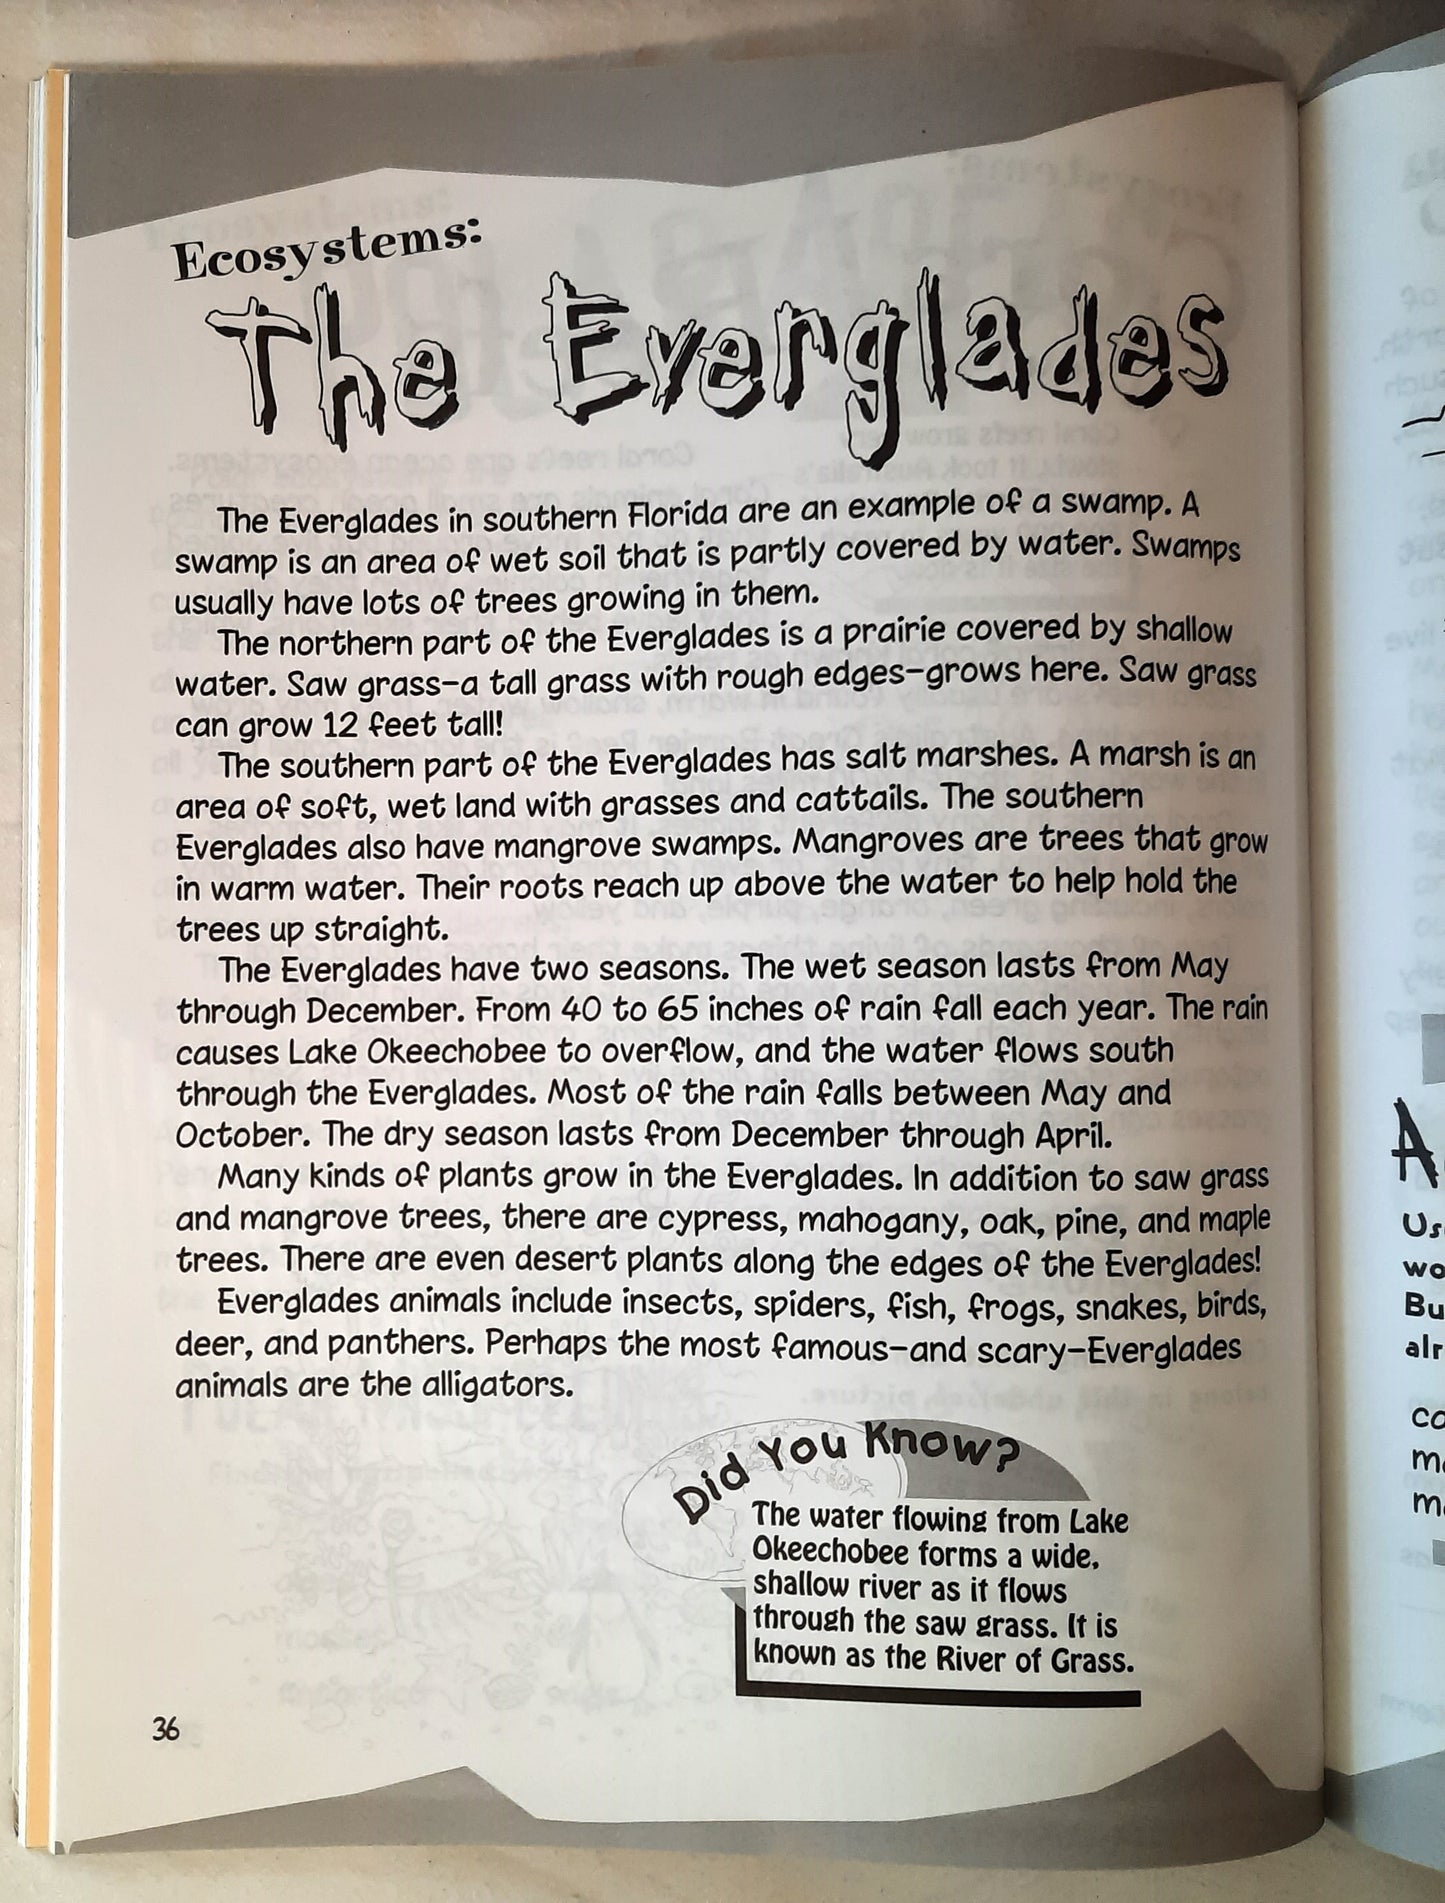 Ecosystems:
The Everglades
The Everglades in southern Florida are an example of a swamp. A
swamp is an area of wet soil that is partly covered by water. Swamps
usually have lots of trees growing in them.
The northern part of the Everglades is a prairie covered by shallow
water. Saw grass—a tall grass with rough edges—grows here. Saw grass
can grow 12 feet tall!
The southern part of the Everglades has salt marshes. A marsh is an
area of soft, wet land with grasses and cattails. The southern
Everglades also have mangrove swamps. Mangroves are trees that grow
in warm water. Their roots reach up above the water to help hold the
trees up straight.
The Everglades have two seasons. The wet season lasts from May
through December. From 40 to 65 inches of rain fall each year. The rain
causes Lake Okeechobee to overflow, and the water flows south
through the Everglades. Most of the rain falls between May and
October. The dry season lasts from December through April.
Many kinds of plants grow in the Everglades. In addition to saw grass
and mangrove trees, there are cypress, mahogany, oak, pine, and maple
trees. There are even desert plants along the edges of the Everglades!
Everglades animals include insects, spiders, fish, frogs, snakes, birds,
deer, and panthers. Perhaps the most famous—and scary—Everglades
animals are the alligators.
Did You Know?
The water flowing from Lake
Okeechobee forms a wide,
shallow river as it flows
through the saw grass. It is
known as the River of Grass.
36